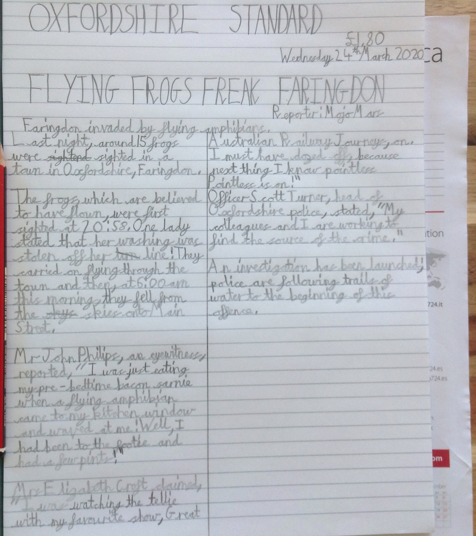 OXFORDSHIRE STANDARD
£1,80
Wednesday 24th March 2020
FLYING FROGS FREAK FARINGDON
Reporter: Mojo Mars
Faringdon invaded by flying amphibians.
Last night, around 15 frogs
were sighted sighted in a
town in Oxfordshire, Faringdon.
The frogs, which are believed
to have flown, were first
sighted at 20:58. One lady
stated that her washing was
stolen off her line! They
carried on flying through the
town and then, at 6:00 am
this morning, they fell from
the skies onto Main
Strot,
Mr John Philips, an eyewitness,
reported, "I was just eating
my pre-bedtime bacon sarnie
when a flying amphibian
came to my kitchen window
and waved at me! Well, I
had been to the and
had a few pints!"
Mrs Elizabeth Croft claimed,
"I was watching the tellie
with my favourite show, Great
Australian Railway Journeys, on.
I must have dozed off, because
next thing I know pointless
Pointless is on!"
Officer Scott Turner, head of
Oxfordshire police, stated, "My
colleagues and I are working to
find the source of the crime."
An investigation has been launched;
police are following trails of
water to the beginning of this
offence.
ca
ation
724.it
om